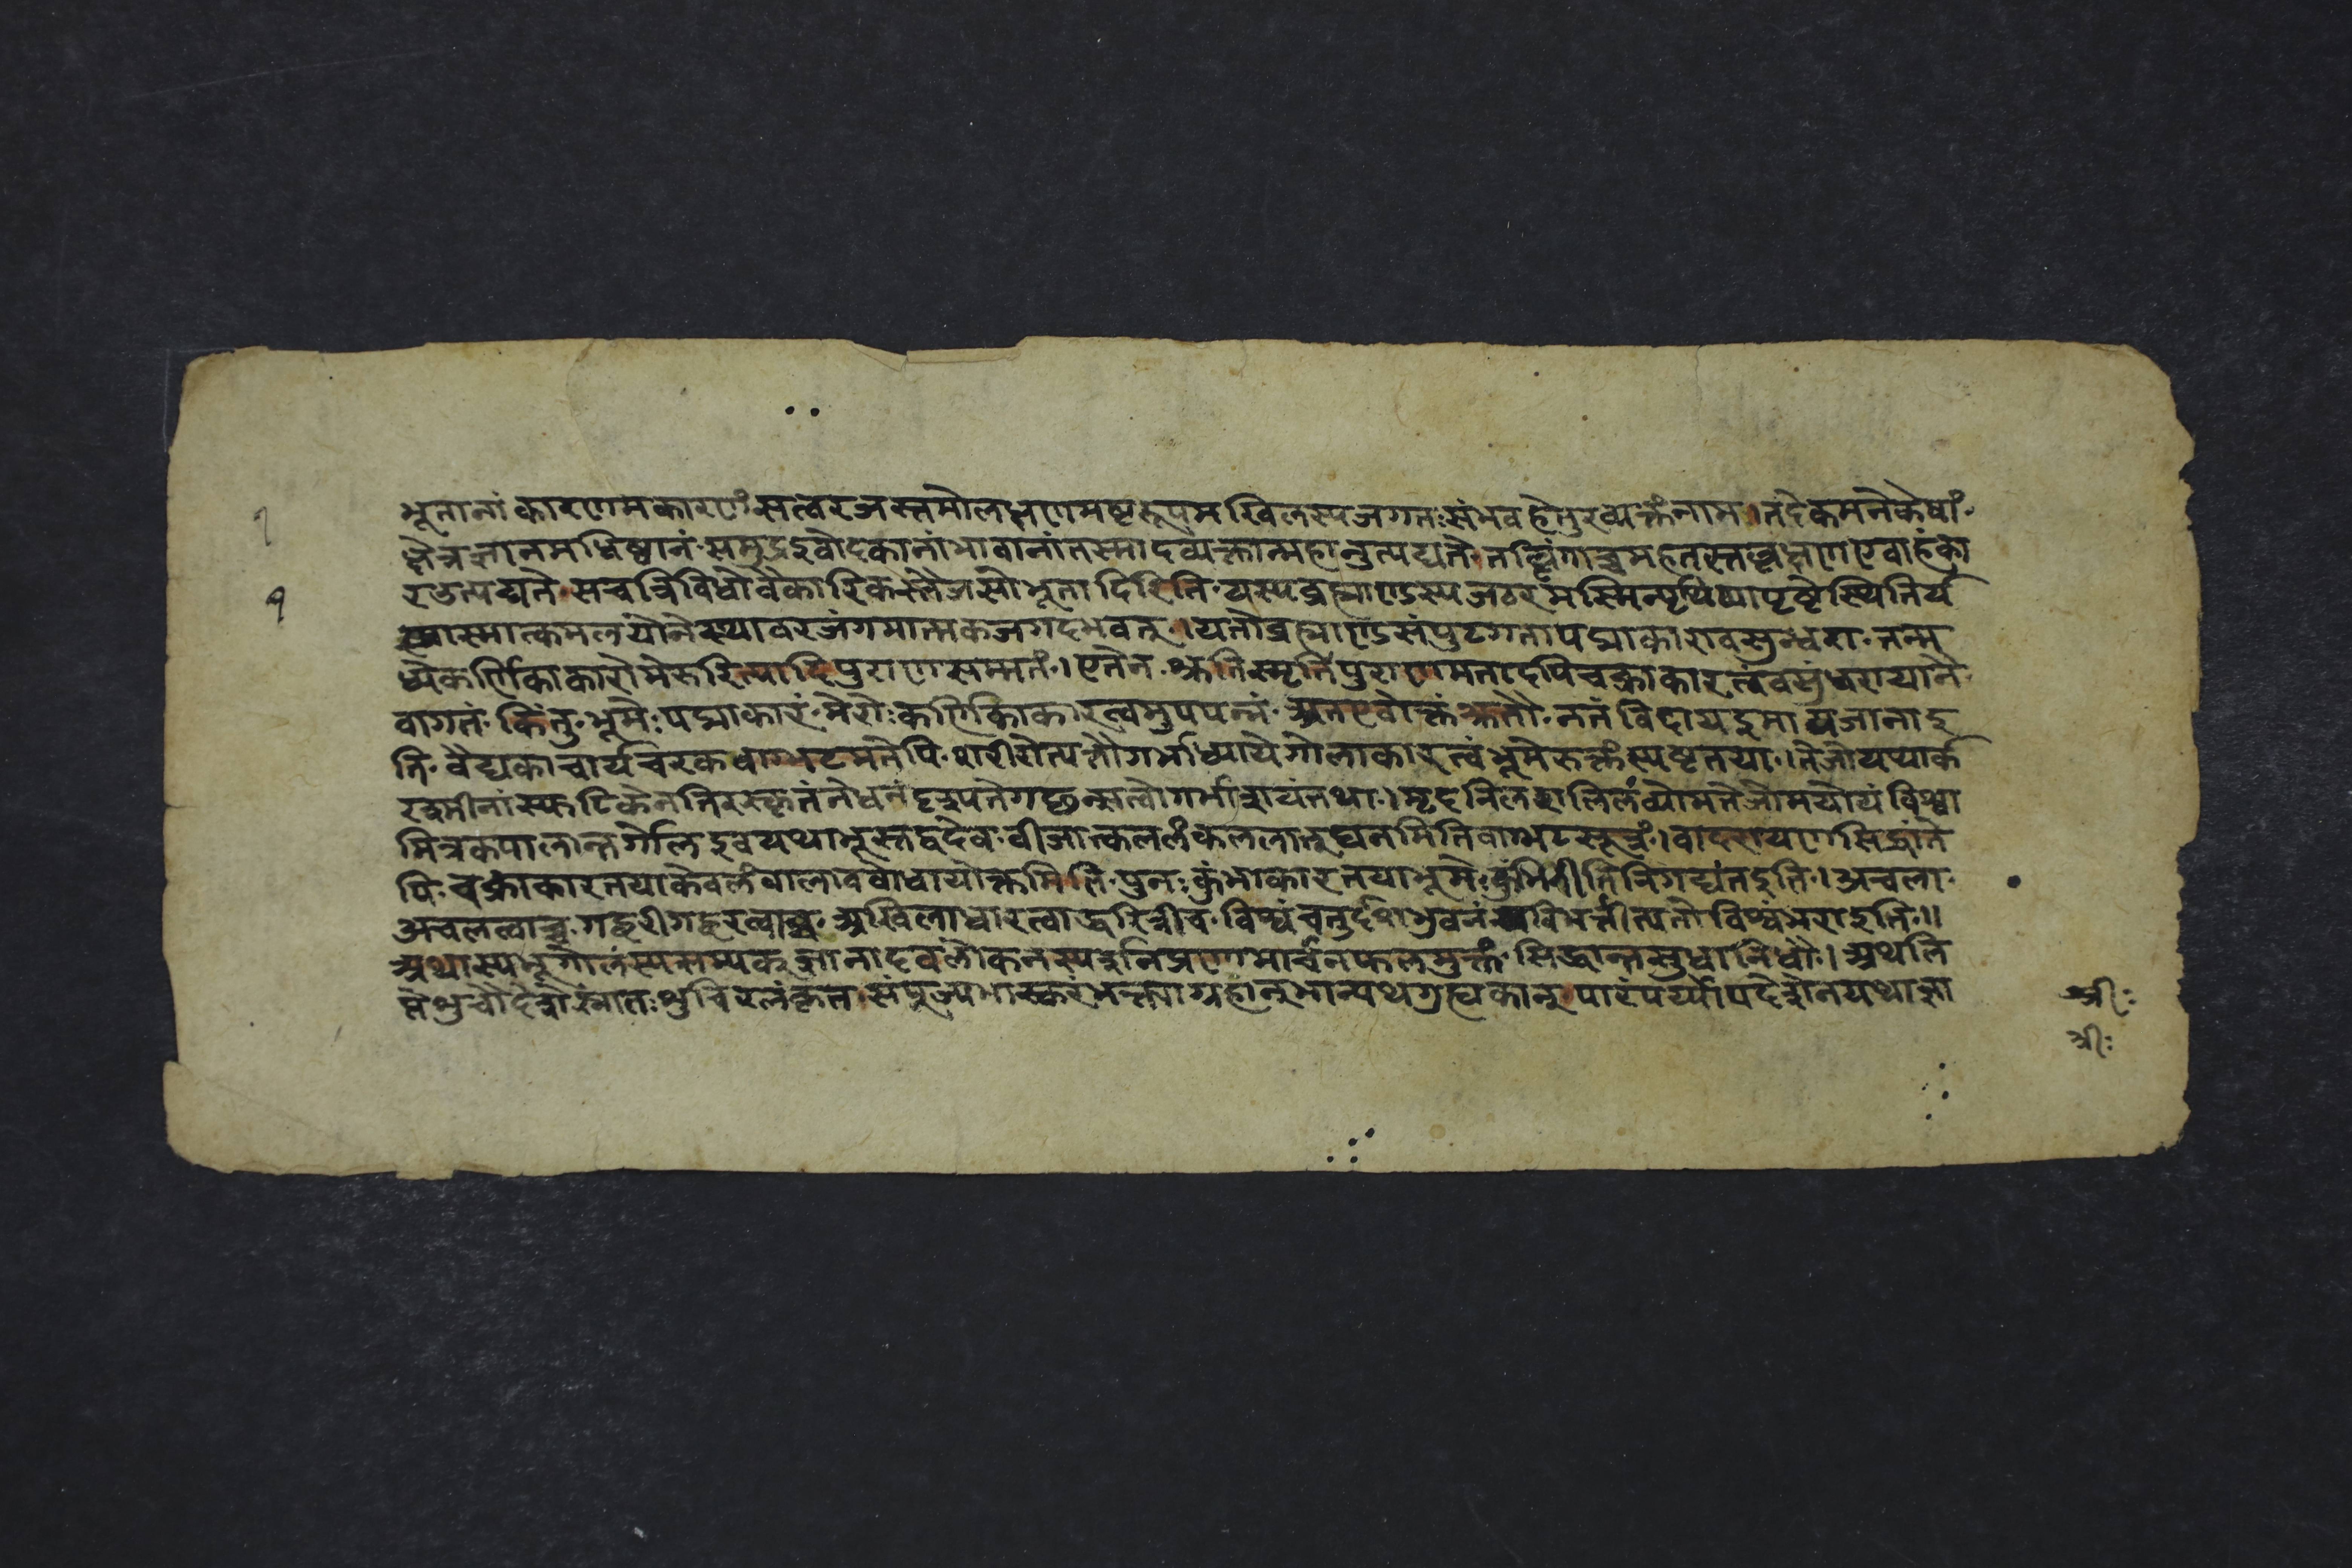 भूतानां कारणमकारणं सत्वरजस्तमोलक्षणमष्टरूपमखिलस्य जगतः संभवहेतुरव्यक्तं नाम । तदेकमनेकेषां
क्षेत्रज्ञानमधिष्ठानं समुद्र इवोदकानां भावानां तस्मादव्यक्तान्महानुत्पद्यते तल्लिंगाच्च महतस्तल्लक्षण एवाहंका
र उत्पद्यते स च त्रिविधो वैकारिकस्तैजसो भूतादिरिति यस्य ब्रह्माण्डस्य जठरमस्मिन्पृथिव्यापृष्टे स्थितिर्य
स्मात्कमलयोने स्थावरजंगमात्मकजगदभवत् । यतो ब्रह्माण्डसंपुटगता पद्माकारा वसुन्धरा तन्म
ध्ये कर्णिकाकारो मेरुरित्यादिपुराणसम्मतं । एतेन श्रुतिस्मृतिपुराणमतादपि चक्राकारत्वं वसुंधरायाने
वागतं किंतु भूमेः पद्माकारं मेरोः कर्णिकाकारत्वमुपपन्नं अत एवोक्तं श्रुतौ न तं विदाय इमा य जाना इ
ति वैद्यकाचार्यचरकवाग्भटमतेपि शरीरोत्पत्तौ गर्भाध्याये गोलाकारत्वं भूमेरुक्तं स्पष्टतया । तेजो यथार्क
रश्मीनां स्फटिकेन तिरस्कृतं नेंधनं दृश्यते गच्छत्सत्वो गर्भाशयं तथा । मृदनिलसलिलव्योमतेजोमयोयं विश्वा
मित्रकपालान्तर्गोलि इव यथा भूस्तद्वदेव वीजात्कललं कललात् घनमिति वाग्भटसूत्रं । वादरायणसिद्धांते
पि चक्राकारतया केवलं वालाववोधायोक्तमिति पुनः कुंभाकारतया भूमेः कुंभिनीति निगद्यंत इति । अचला
अचलत्वाच्च गह्वरी गह्वरत्वाच्च अखिलाधारत्वाद्धरित्री च विश्वं चतुर्दशभुवनं विभर्त्तीत्यतो विश्वंभरा इति ॥
अथास्य भूगोलस्य सम्यक् ज्ञानादवलोकनस्पर्शनिप्राणमार्चनफलमुक्तं सिद्धान्तसुधानिधौ । अथ लि
प्ते भुचौ देशे स्नातः शुचिरलंकृत संपूज्य भास्करं भक्त्या ग्रहान् भान्यथ गुह्यकान् पारंपर्य्योपदेशेन यथा ज्ञा
१
१
श्रीः
श्रीः